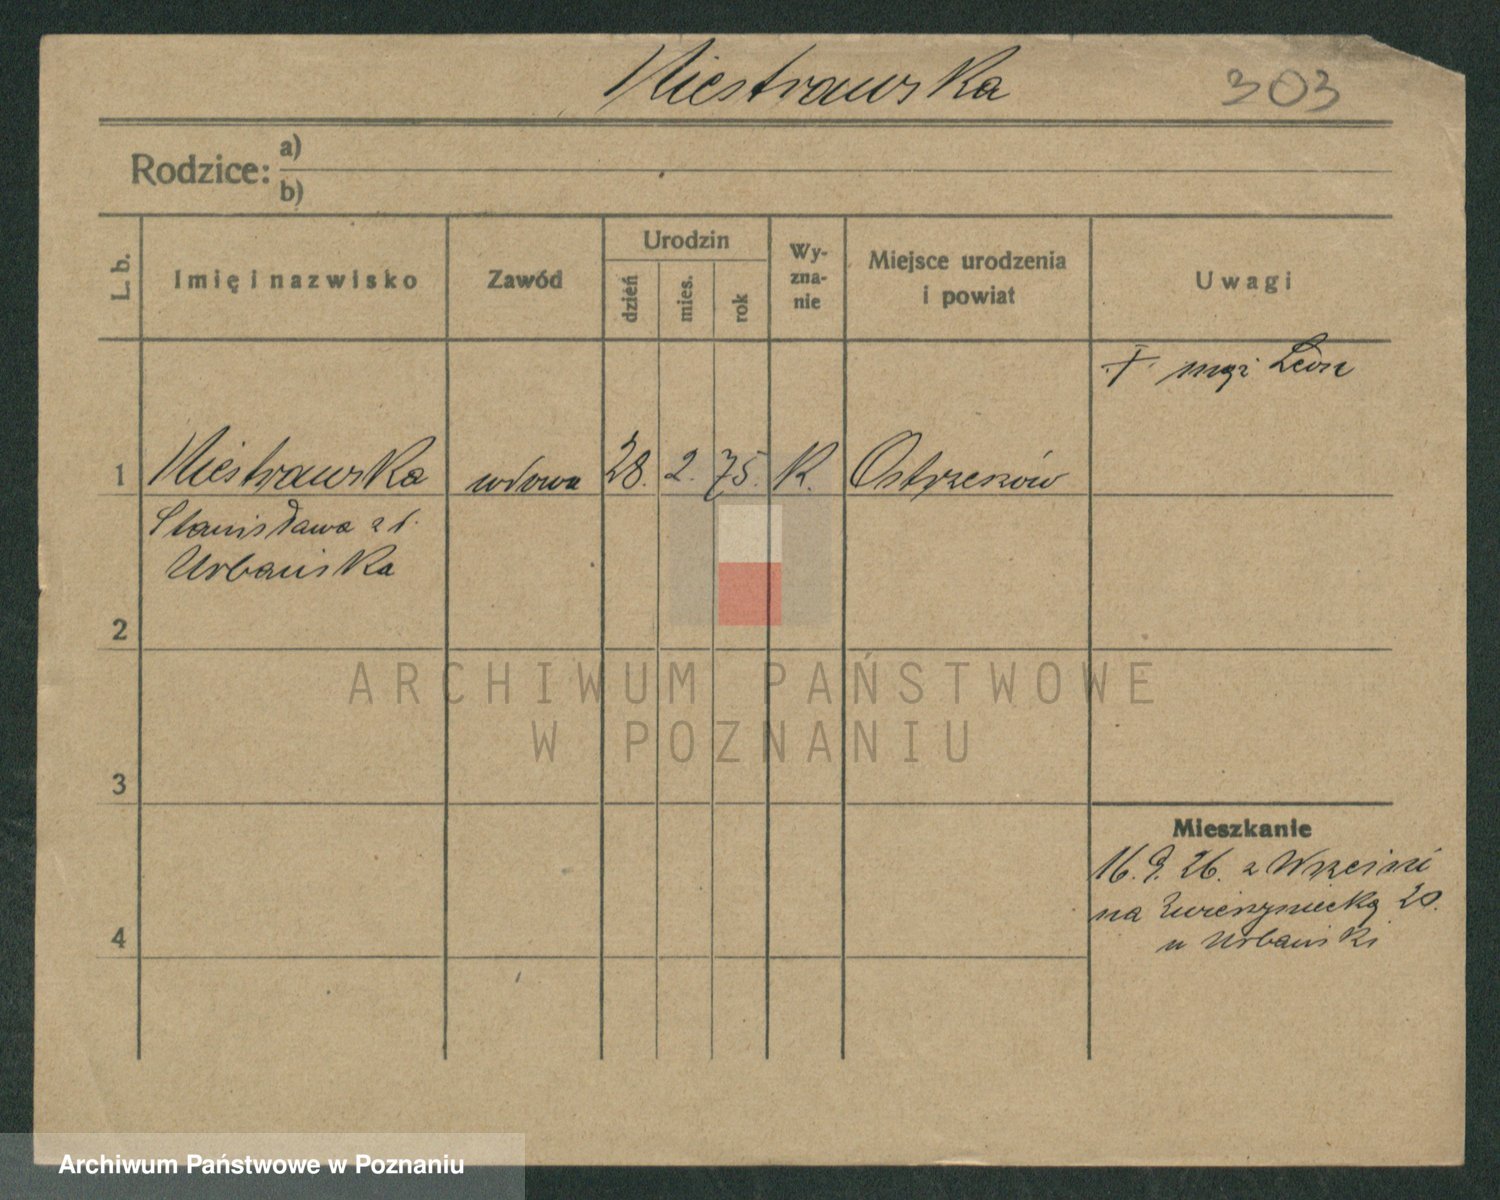 Niestrawska 303
Rodzice: a)
b)
L. b. Imię i nazwisko Zawód Urodzin dzień mies. rok Wy-zna-nie Miejsce urodzenia i powiat Uwagi
† mąż Leon
1 Niestrawska wdowa 28. 2. 75. K. Ostrzeszów
Stanisława z d.
Urbańska
2
ARCHIWUM PAŃSTWOWE
W POZNANIU
3
Mieszkanie
16. 9. 26. z Wrześni
na Zwierzyniecką 20.
u Urbański
4
Archiwum Państwowe w Poznaniu